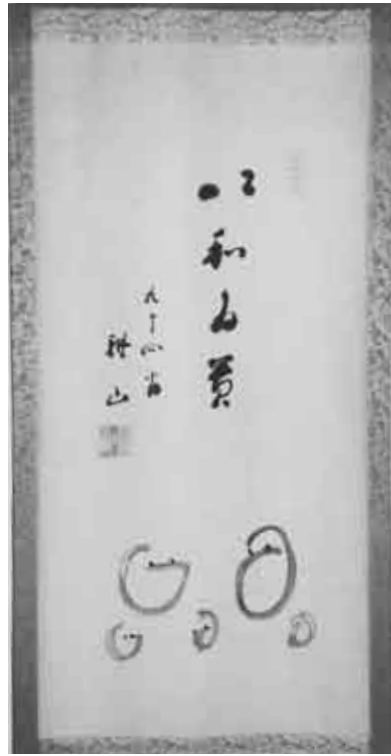 以和為貴
九十
耕山